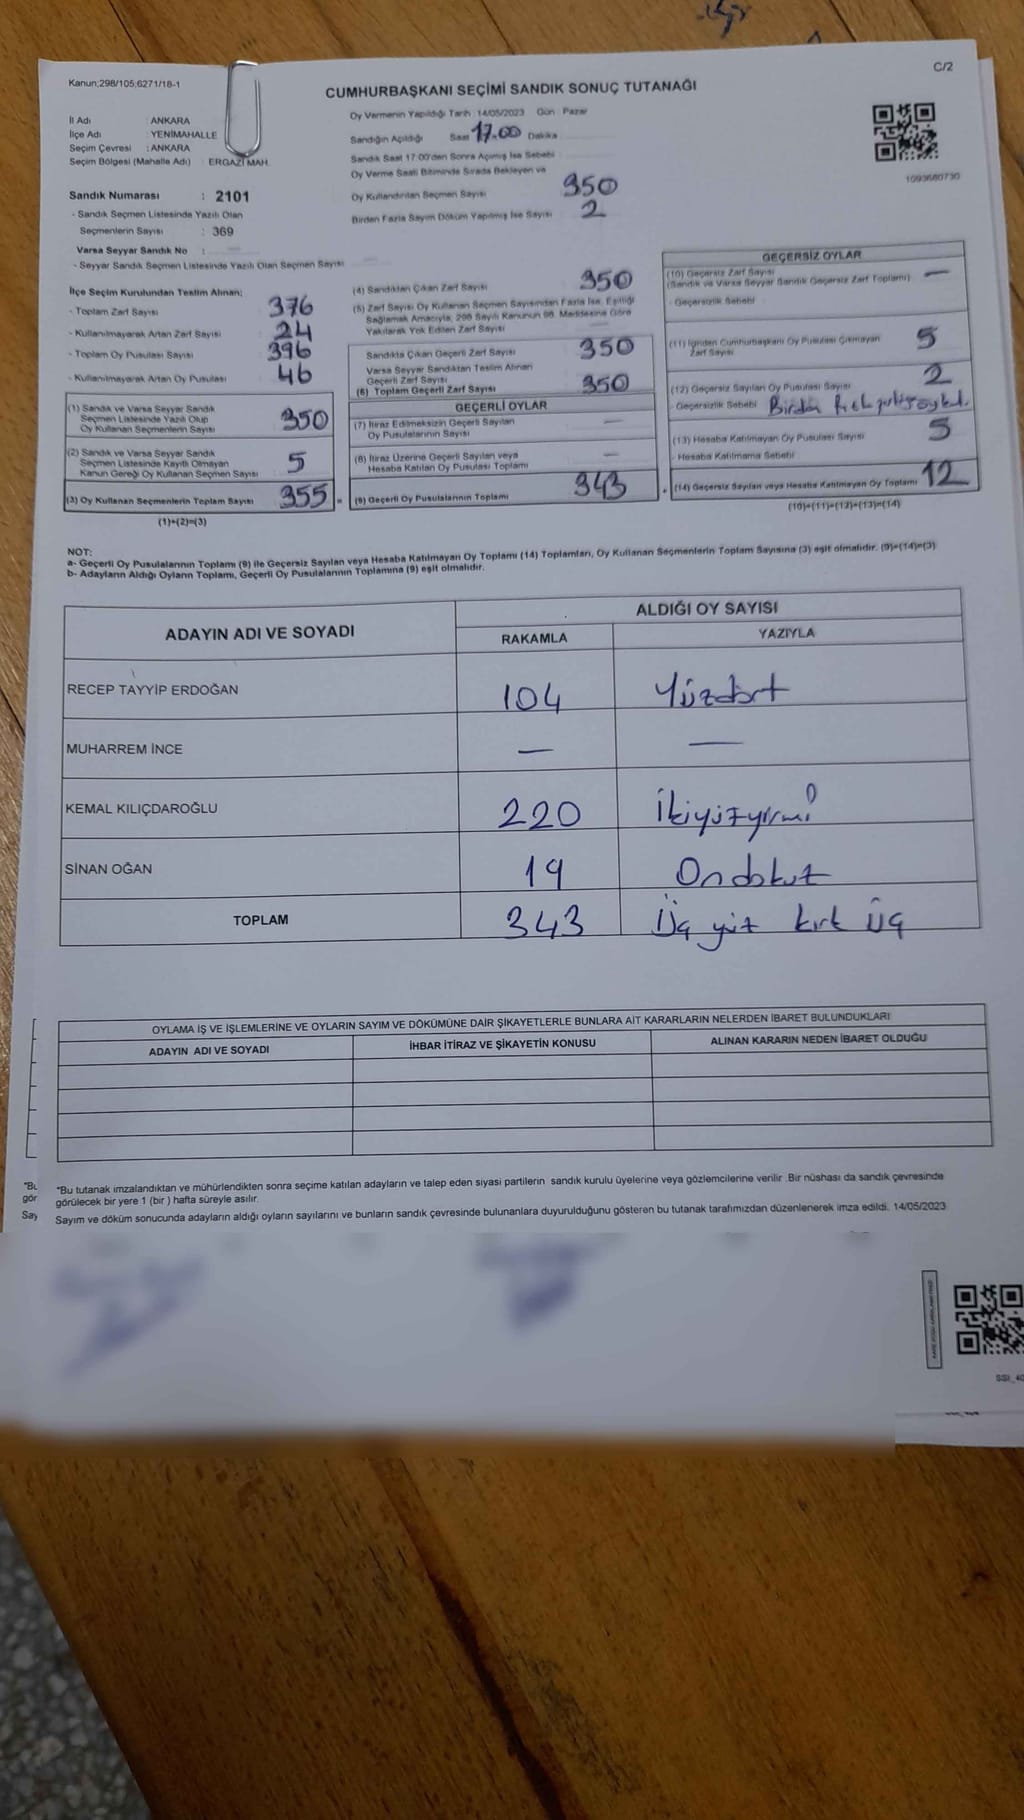 Kanun;298/105;6271/18-1
C/2
CUMHURBAŞKANI SEÇİMİ SANDIK SONUÇ TUTANAĞI
İl Adı : ANKARA
İlçe Adı : YENİMAHALLE
Seçim Çevresi : ANKARA
Seçim Bölgesi (Mahalle Adı) : ERGAZİ MAH.
Sandık Numarası : 2101
- Sandık Seçmen Listesinde Yazılı Olan
Seçmenlerin Sayısı : 369
Varsa Seyyar Sandık No :
- Seyyar Sandık Seçmen Listesinde Yazılı Olan Seçmen Sayısı
İlçe Seçim Kurulundan Teslim Alınan;
- Toplam Zarf Sayısı 376
- Kullanılmayarak Artan Zarf Sayısı 24
- Toplam Oy Pusulası Sayısı 396
- Kullanılmayarak Artan Oy Pusulası 46
(1) Sandık ve Varsa Seyyar Sandık
Seçmen Listesinde Yazılı Olup
Oy Kullanan Seçmenlerin Sayısı 350
(2) Sandık ve Varsa Seyyar Sandık
Seçmen Listesinde Kayıtlı Olmayan
Kanun Gereği Oy Kullanan Seçmen Sayısı 5
(3) Oy Kullanan Seçmenlerin Toplam Sayısı 355 =
(1)+(2)=(3)
Oy Vermenin Yapıldığı Tarih : 14/05/2023 Gün : Pazar
Sandığın Açıldığı Saat 17.00 Dakika
Sandık Saat 17:00'den Sonra Açılmış İse Sebebi
Oy Verme Saati Bitiminde Sırada Bekleyen ve
Oy Kullandırılan Seçmen Sayısı 350
Birden Fazla Sayım Döküm Yapılmış İse Sayısı 2
(4) Sandıktan Çıkan Zarf Sayısı 350
(5) Zarf Sayısı Oy Kullanan Seçmen Sayısından Fazla İse, Eşitliği
Sağlamak Amacıyla, 298 Sayılı Kanunun 98. Maddesine Göre
Yakılarak Yok Edilen Zarf Sayısı
Sandıkta Çıkan Geçerli Zarf Sayısı 350
Varsa Seyyar Sandıktan Teslim Alınan
Geçerli Zarf Sayısı
(6) Toplam Geçerli Zarf Sayısı 350
GEÇERLİ OYLAR
(7) İtiraz Edilmeksizin Geçerli Sayılan
Oy Pusulalarının Sayısı —
(8) İtiraz Üzerine Geçerli Sayılan veya
Hesaba Katılan Oy Pusulası Toplamı —
(9) Geçerli Oy Pusulalarının Toplamı 343 +
1093680730
GEÇERSİZ OYLAR
(10) Geçersiz Zarf Sayısı —
(Sandık ve Varsa Seyyar Sandık Geçersiz Zarf Toplamı)
- Geçersizlik Sebebi
(11) İçinden Cumhurbaşkanı Oy Pusulası Çıkmayan
Zarf Sayısı 5
(12) Geçersiz Sayılan Oy Pusulası Sayısı 2
- Geçersizlik Sebebi Birden
(13) Hesaba Katılmayan Oy Pusulası Sayısı 5
- Hesaba Katılmama Sebebi
(14) Geçersiz Sayılan veya Hesaba Katılmayan Oy Toplamı 12
(10)+(11)+(12)+(13)=(14)
NOT:
a- Geçerli Oy Pusulalarının Toplamı (9) ile Geçersiz Sayılan veya Hesaba Katılmayan Oy Toplamı (14) Toplamları, Oy Kullanan Seçmenlerin Toplam Sayısına (3) eşit olmalıdır. (9)+(14)=(3)
b- Adayların Aldığı Oyların Toplamı, Geçerli Oy Pusulalarının Toplamına (9) eşit olmalıdır.
ADAYIN ADI VE SOYADI
ALDIĞI OY SAYISI
RAKAMLA YAZIYLA
RECEP TAYYİP ERDOĞAN 104 Yüzdört
MUHARREM İNCE — —
KEMAL KILIÇDAROĞLU 220 İkiyüzyirmi
SİNAN OĞAN 19 Ondokuz
TOPLAM 343 Üç yüz kırk üç
OYLAMA İŞ VE İŞLEMLERİNE VE OYLARIN SAYIM VE DÖKÜMÜNE DAİR ŞİKAYETLERLE BUNLARA AİT KARARLARIN NELERDEN İBARET BULUNDUKLARI
ADAYIN ADI VE SOYADI İHBAR İTİRAZ VE ŞİKAYETİN KONUSU ALINAN KARARIN NEDEN İBARET OLDUĞU
"Bu
gör
Say
"Bu tutanak imzalandıktan ve mühürlendikten sonra seçime katılan adayların ve talep eden siyasi partilerin sandık kurulu üyelerine veya gözlemcilerine verilir .Bir nüshası da sandık çevresinde
görülecek bir yere 1 (bir ) hafta süreyle asılır.
Sayım ve döküm sonucunda adayların aldığı oyların sayılarını ve bunların sandık çevresinde bulunanlara duyurulduğunu gösteren bu tutanak tarafımızdan düzenlenerek imza edildi. 14/05/2023
SSI_40